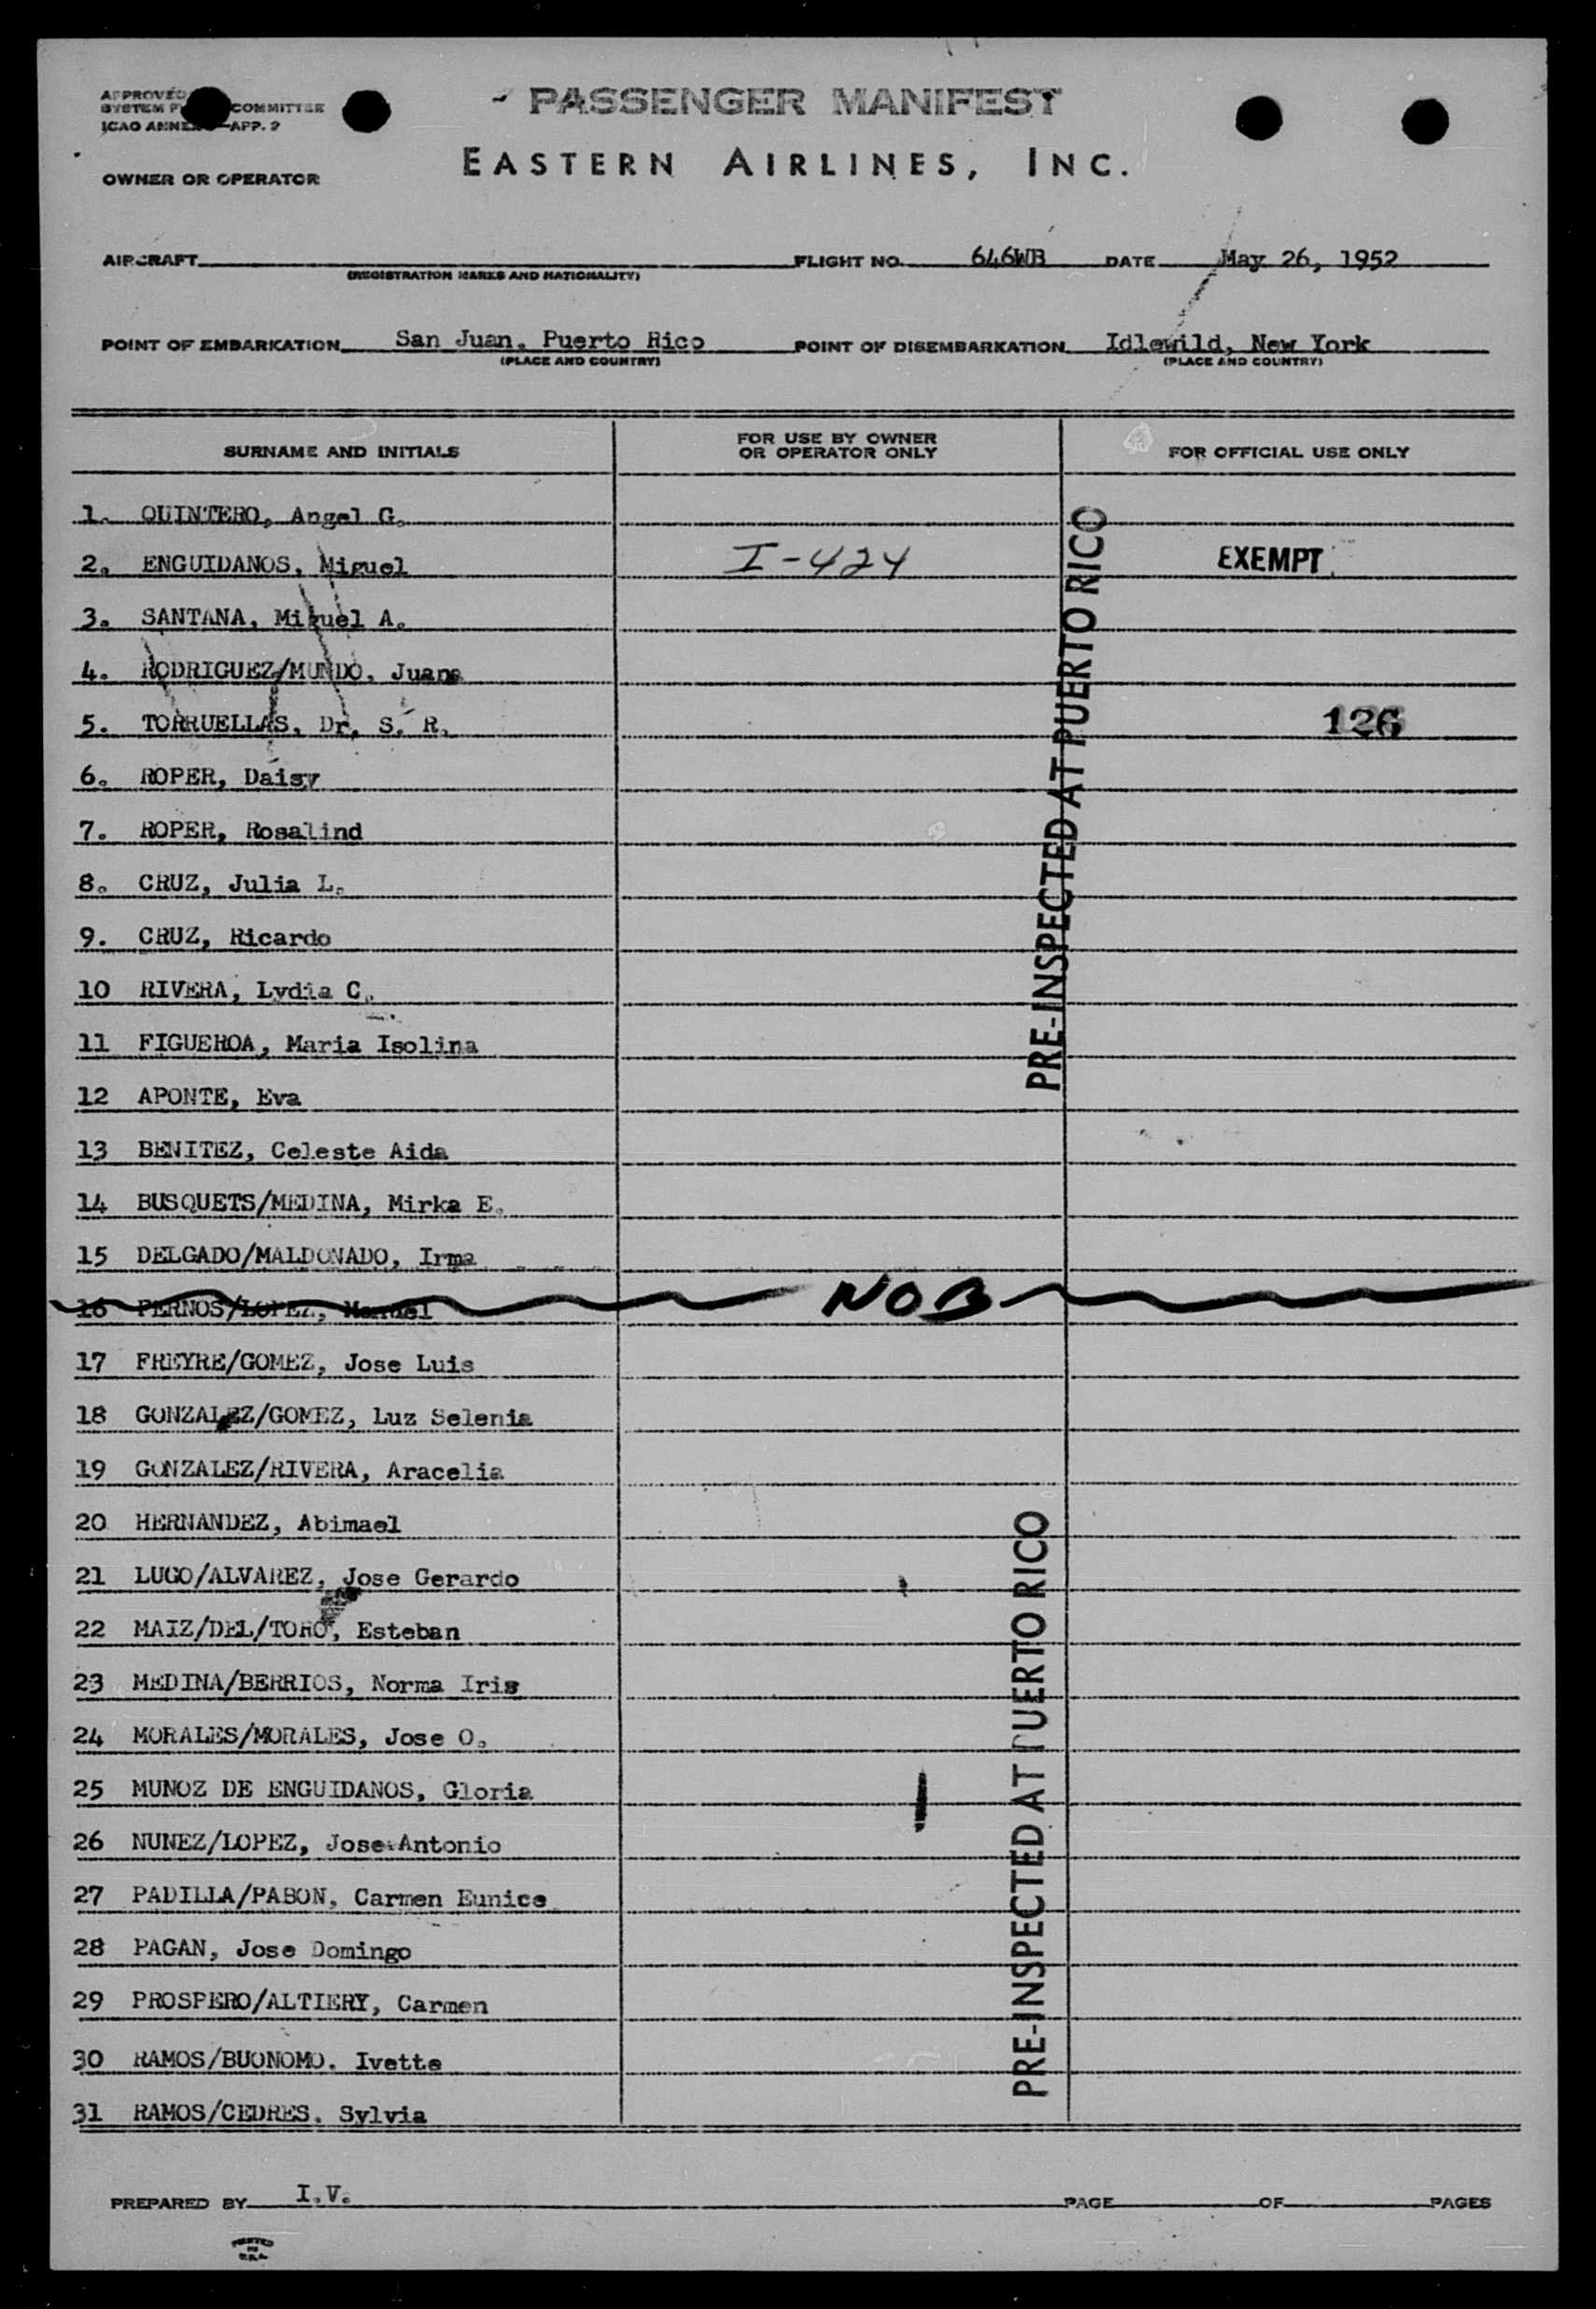 APPROVED
SYSTEM COMMITTEE
ICAO APP. 9
PASSENGER MANIFEST
EASTERN AIRLINES, INC.
OWNER OR OPERATOR
AIRCRAFT FLIGHT NO. 646WB DATE May 26, 1952
(REGISTRATION MARKS AND NATIONALITY)
POINT OF EMBARKATION San Juan, Puerto Rico POINT OF DISEMBARKATION Idlewild, New York
(PLACE AND COUNTRY) (PLACE AND COUNTRY)
SURNAME AND INITIALS FOR USE BY OWNER OR OPERATOR ONLY FOR OFFICIAL USE ONLY
1. QUINTERO, Angel G.
2. ENGUIDANOS, Miguel I-424 EXEMPT
3. SANTANA, Miguel A.
4. RODRIGUEZ/MUNDO, Juana
5. TORRUELLAS, Dr. S. R. 126
6. ROPER, Daisy
7. ROPER, Rosalind
8. CRUZ, Julia L.
9. CRUZ, Ricardo
10 RIVERA, Lydia C.
11 FIGUEROA, Maria Isolina
12 APONTE, Eva
PRE-INSPECTED AT PUERTO RICO
13 BENITEZ, Celeste Aida
14 BUSQUETS/MEDINA, Mirka E.
15 DELGADO/MALDONADO, Irma
16 PERNOS/LOPEZ, Manuel NOB
17 FREYRE/GOMEZ, Jose Luis
18 GONZALEZ/GOMEZ, Luz Selenia
19 GONZALEZ/RIVERA, Aracelia
20 HERNANDEZ, Abimael
21 LUGO/ALVAREZ, Jose Gerardo
22 MAIZ/DEL/TORO, Esteban
23 MEDINA/BERRIOS, Norma Iris
24 MORALES/MORALES, Jose O.
25 MUNOZ DE ENGUIDANOS, Gloria
26 NUNEZ/LOPEZ, Jose Antonio
27 PADILLA/PABON, Carmen Eunice
28 PAGAN, Jose Domingo
29 PROSPERO/ALTIERY, Carmen
30 RAMOS/BUONOMO. Ivette
31 RAMOS/CEDRES. Sylvia
PRE-INSPECTED AT PUERTO RICO
PREPARED BY I.V. PAGE OF PAGES
PRINTED
IN
U.S.A.